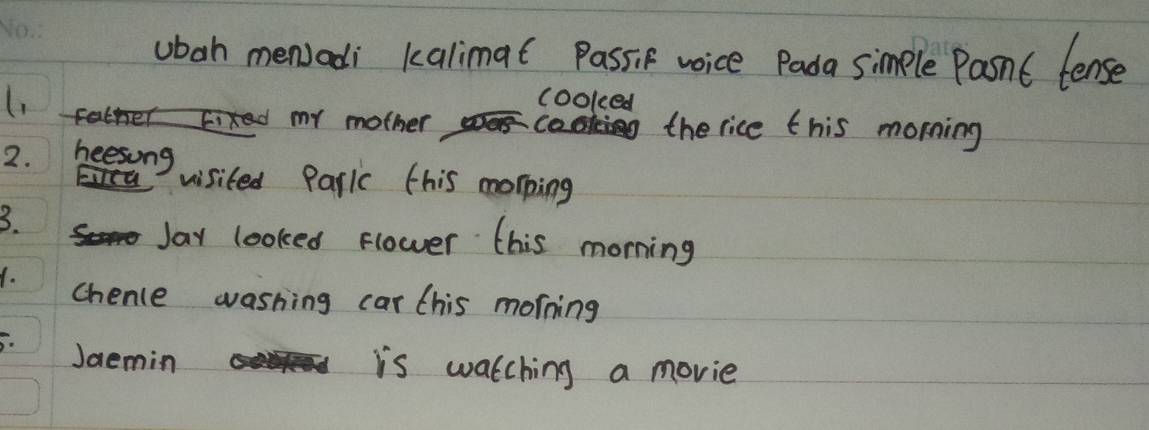 No.:
Date
Ubah menjadi kalimat Passif voice Pada simple Pasnt tense
1. Father Fixed my mother was cooking cooked the rice this morning
2. heesung visited Park this morning
3. Jay looked Flower this morning
4. Chenle washing car this morning
5. Jaemin is watching a movie